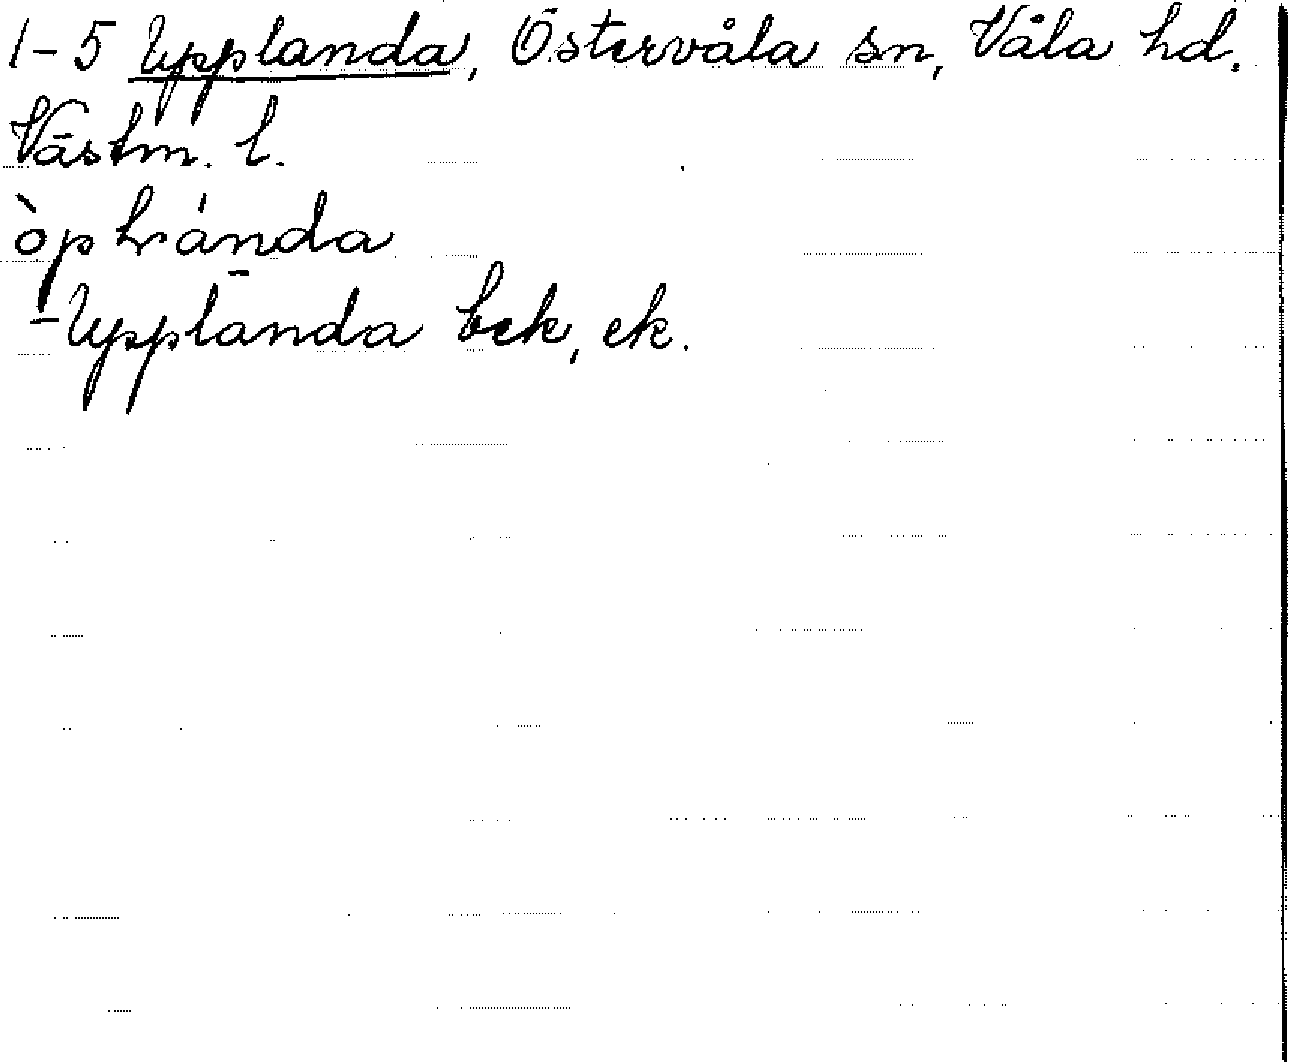 1-5 Upplanda, Östervåla sn, Våla hd.
Västm. l.
òplánda
- Upplānda bek, ek.